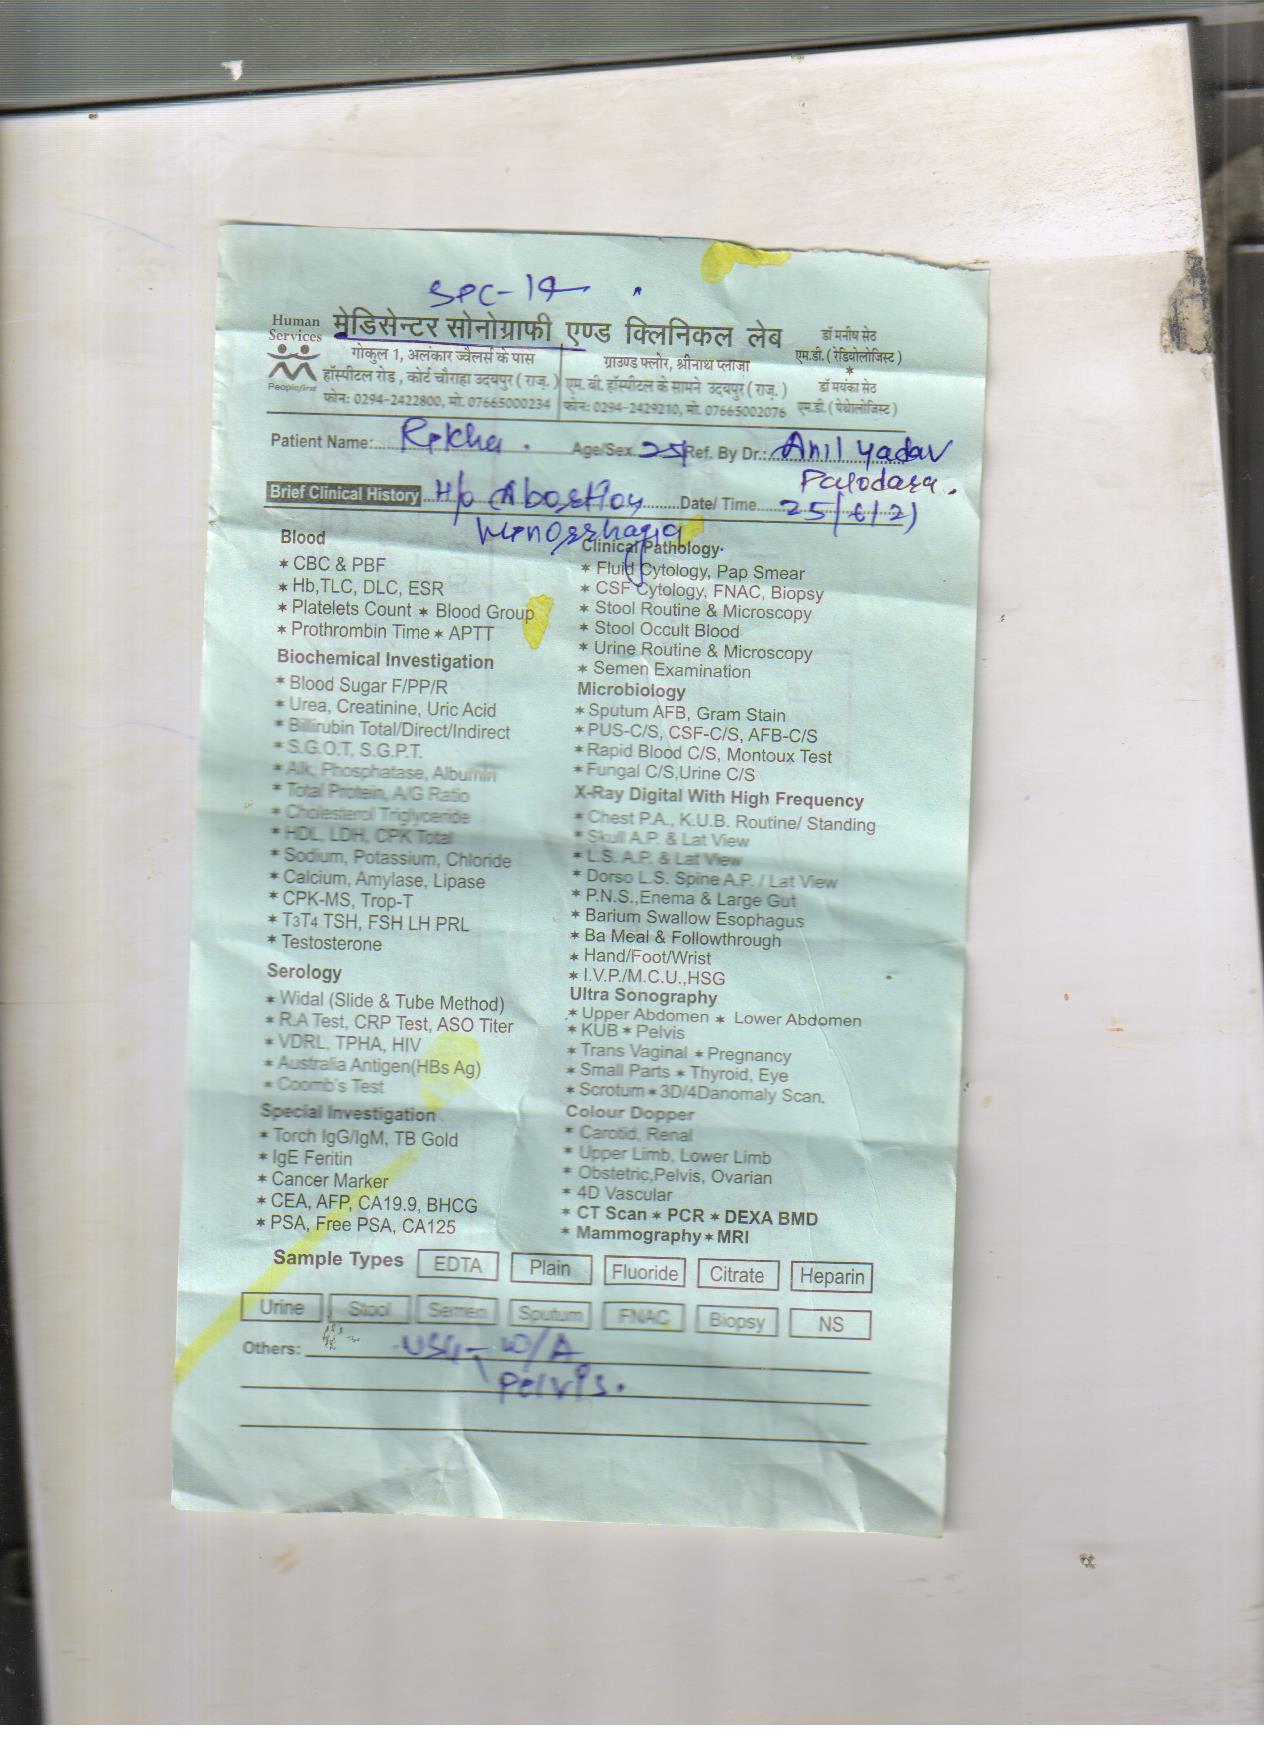 SPC-14
Human Services
Peoplefirst
मेडिसेन्टर सोनोग्राफी एण्ड क्लिनिकल लेब
गोकुल 1, अलंकार ज्वैलर्स के पास
हॉस्पीटल रोड, कोर्ट चौराहा उदयपुर (राज.)
फोन: 0294-2422800, मो. 07665000234
ग्राउण्ड फ्लोर, श्रीनाथ प्लाजा
एम. बी. हॉस्पीटल के सामने उदयपुर (राज.)
फोन: 0294-2429210, मो. 07665002076
डॉ मनीष सेठ
एम.डी. (रेडियोलोजिस्ट)
*
डॉ मयंका सेठ
एम.डी. (पेथोलोजिस्ट)
Patient Name: Rekha. Age/Sex 25 Ref. By Dr.: Anil Yadav
Brief Clinical History H/o Abortion Date/ Time 25/6/21
Blood
* CBC & PBF
* Hb,TLC, DLC, ESR
* Platelets Count * Blood Group
* Prothrombin Time * APTT
Biochemical Investigation
* Blood Sugar F/PP/R
* Urea, Creatinine, Uric Acid
* Billirubin Total/Direct/Indirect
* S.G.O.T, S.G.P.T.
* Alk, Phosphatase, Albumin
* Total Protein, A/G Ratio
* Cholesterol Triglyceride
* HDL, LDH, CPK Total
* Sodium, Potassium, Chloride
* Calcium, Amylase, Lipase
* CPK-MS, Trop-T
* T3T4 TSH, FSH LH PRL
* Testosterone
Serology
* Widal (Slide & Tube Method)
* R.A Test, CRP Test, ASO Titer
* VDRL, TPHA, HIV
* Australia Antigen(HBs Ag)
* Coomb's Test
Special Investigation
* Torch IgG/IgM, TB Gold
* IgE Feritin
* Cancer Marker
* CEA, AFP, CA19.9, BHCG
* PSA, Free PSA, CA125
Clinical Pathology
* Fluid Cytology, Pap Smear
* CSF Cytology, FNAC, Biopsy
* Stool Routine & Microscopy
* Stool Occult Blood
* Urine Routine & Microscopy
* Semen Examination
Microbiology
* Sputum AFB, Gram Stain
* PUS-C/S, CSF-C/S, AFB-C/S
* Rapid Blood C/S, Montoux Test
* Fungal C/S,Urine C/S
X-Ray Digital With High Frequency
* Chest P.A., K.U.B. Routine/ Standing
* Skull A.P. & Lat View
* L.S. A.P. & Lat View
* Dorso L.S. Spine A.P. / Lat View
* P.N.S.,Enema & Large Gut
* Barium Swallow Esophagus
* Ba Meal & Followthrough
* Hand/Foot/Wrist
* I.V.P./M.C.U.,HSG
Ultra Sonography
* Upper Abdomen * Lower Abdomen
* KUB * Pelvis
* Trans Vaginal * Pregnancy
* Small Parts * Thyroid, Eye
* Scrotum * 3D/4Danomaly Scan.
Colour Dopper
* Carotid, Renal
* Upper Limb, Lower Limb
* Obstetric,Pelvis, Ovarian
* 4D Vascular
* CT Scan * PCR * DEXA BMD
* Mammography * MRI
Sample Types EDTA Plain Fluoride Citrate Heparin
Urine Stool Semen Sputum FNAC Biopsy NS
Others: USG- W/A
Pelvis.